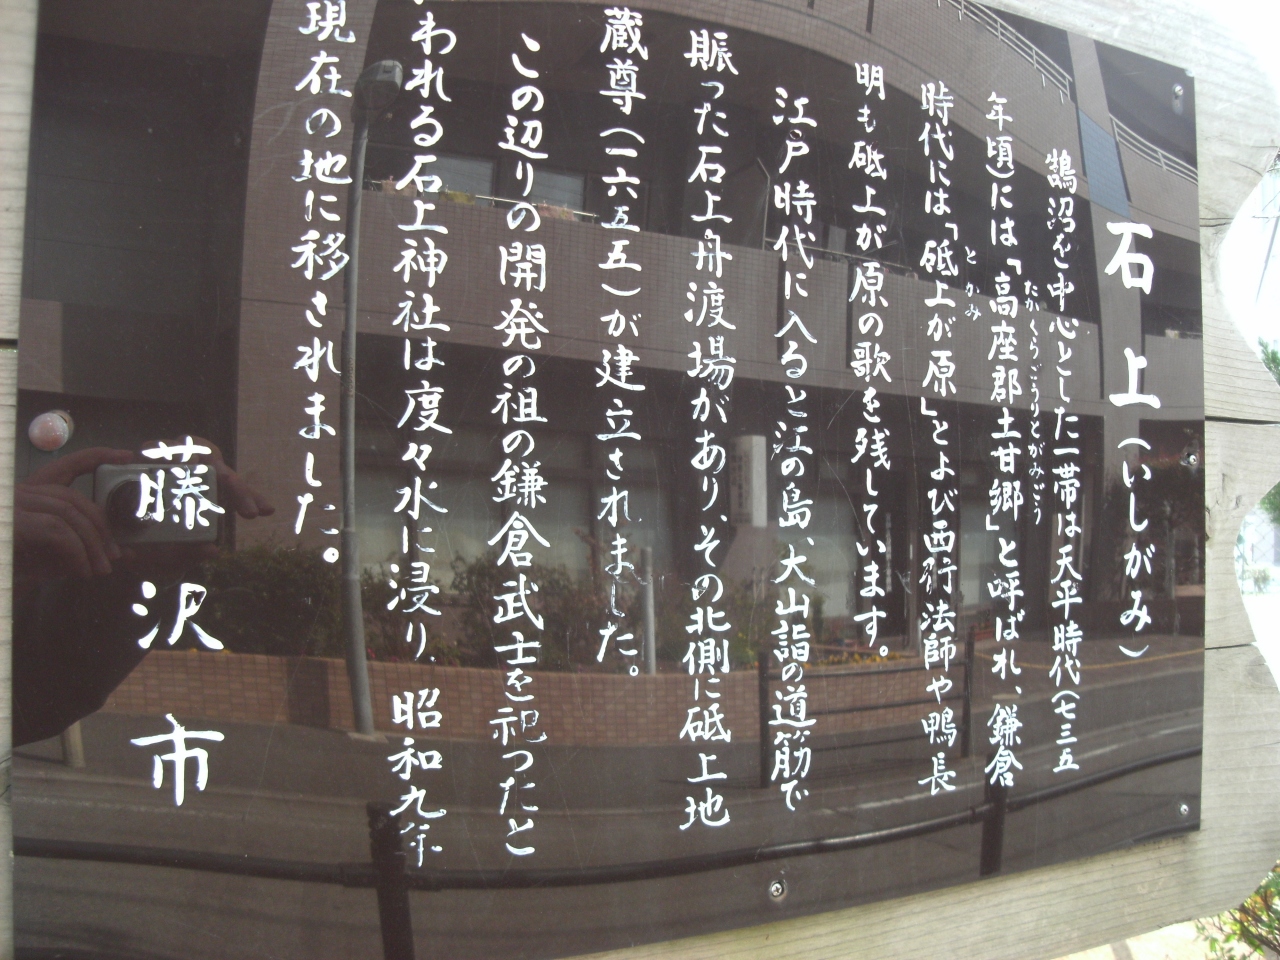 石上(いしがみ)
鵠沼を中心とした一帯は天平時代(七三五
年頃)には「高座郡土甘郷」と呼ばれ、鎌倉
たかくらごうりとがみごう
時代には「砥上が原」とよび西行法師や鴨長
とかみ
明も砥上が原の歌を残しています。
江戸時代に入ると江の島、大山詣の道筋で
賑った石上舟渡場があり、その北側に砥上地
蔵尊(一六五五)が建立されました。
この辺りの開発の祖の鎌倉武士を祀ったと
われる石上神社は度々水に浸り、昭和九年
現在の地に移されました。
藤沢市